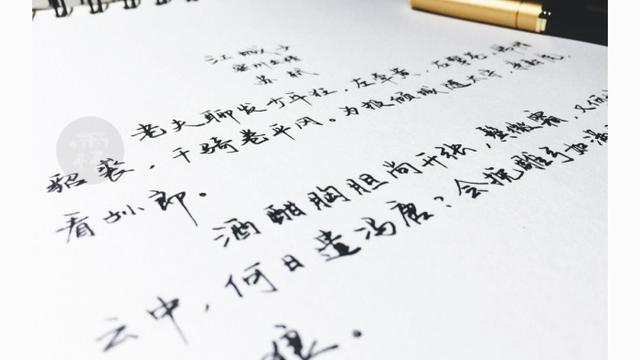 江城子
密州出猎
苏轼
老夫聊发少年狂，左牵黄，右擎苍，锦帽
貂裘，千骑卷平冈。为报倾城随太守，亲射虎，
看孙郎。
酒酣胸胆尚开张，鬓微霜，又何
云中，何日遣冯唐？会挽雕弓如满
狼。